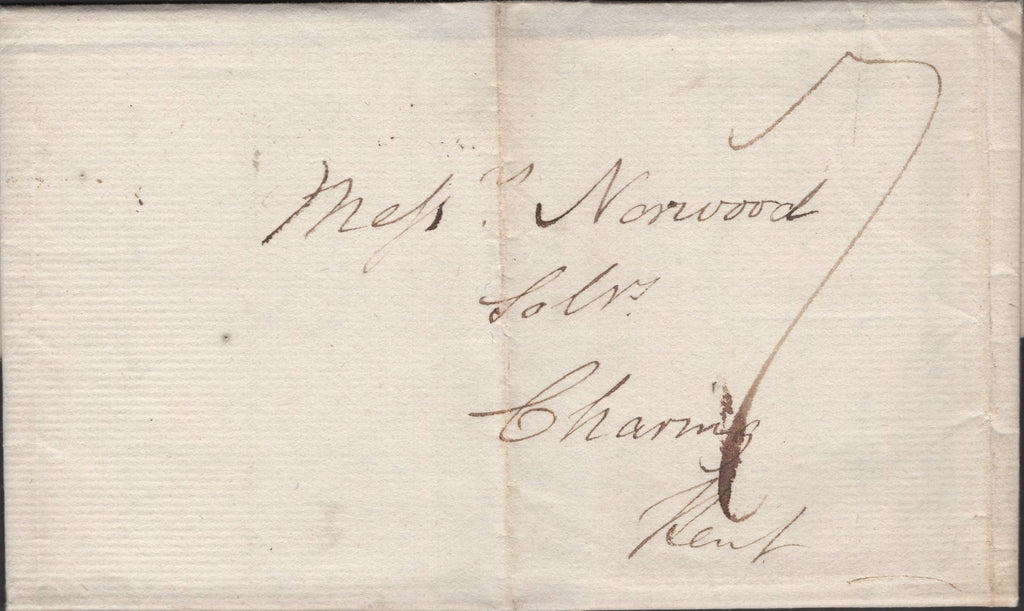 7
Messrs. Norwood
Solrs.
Charing
Kent